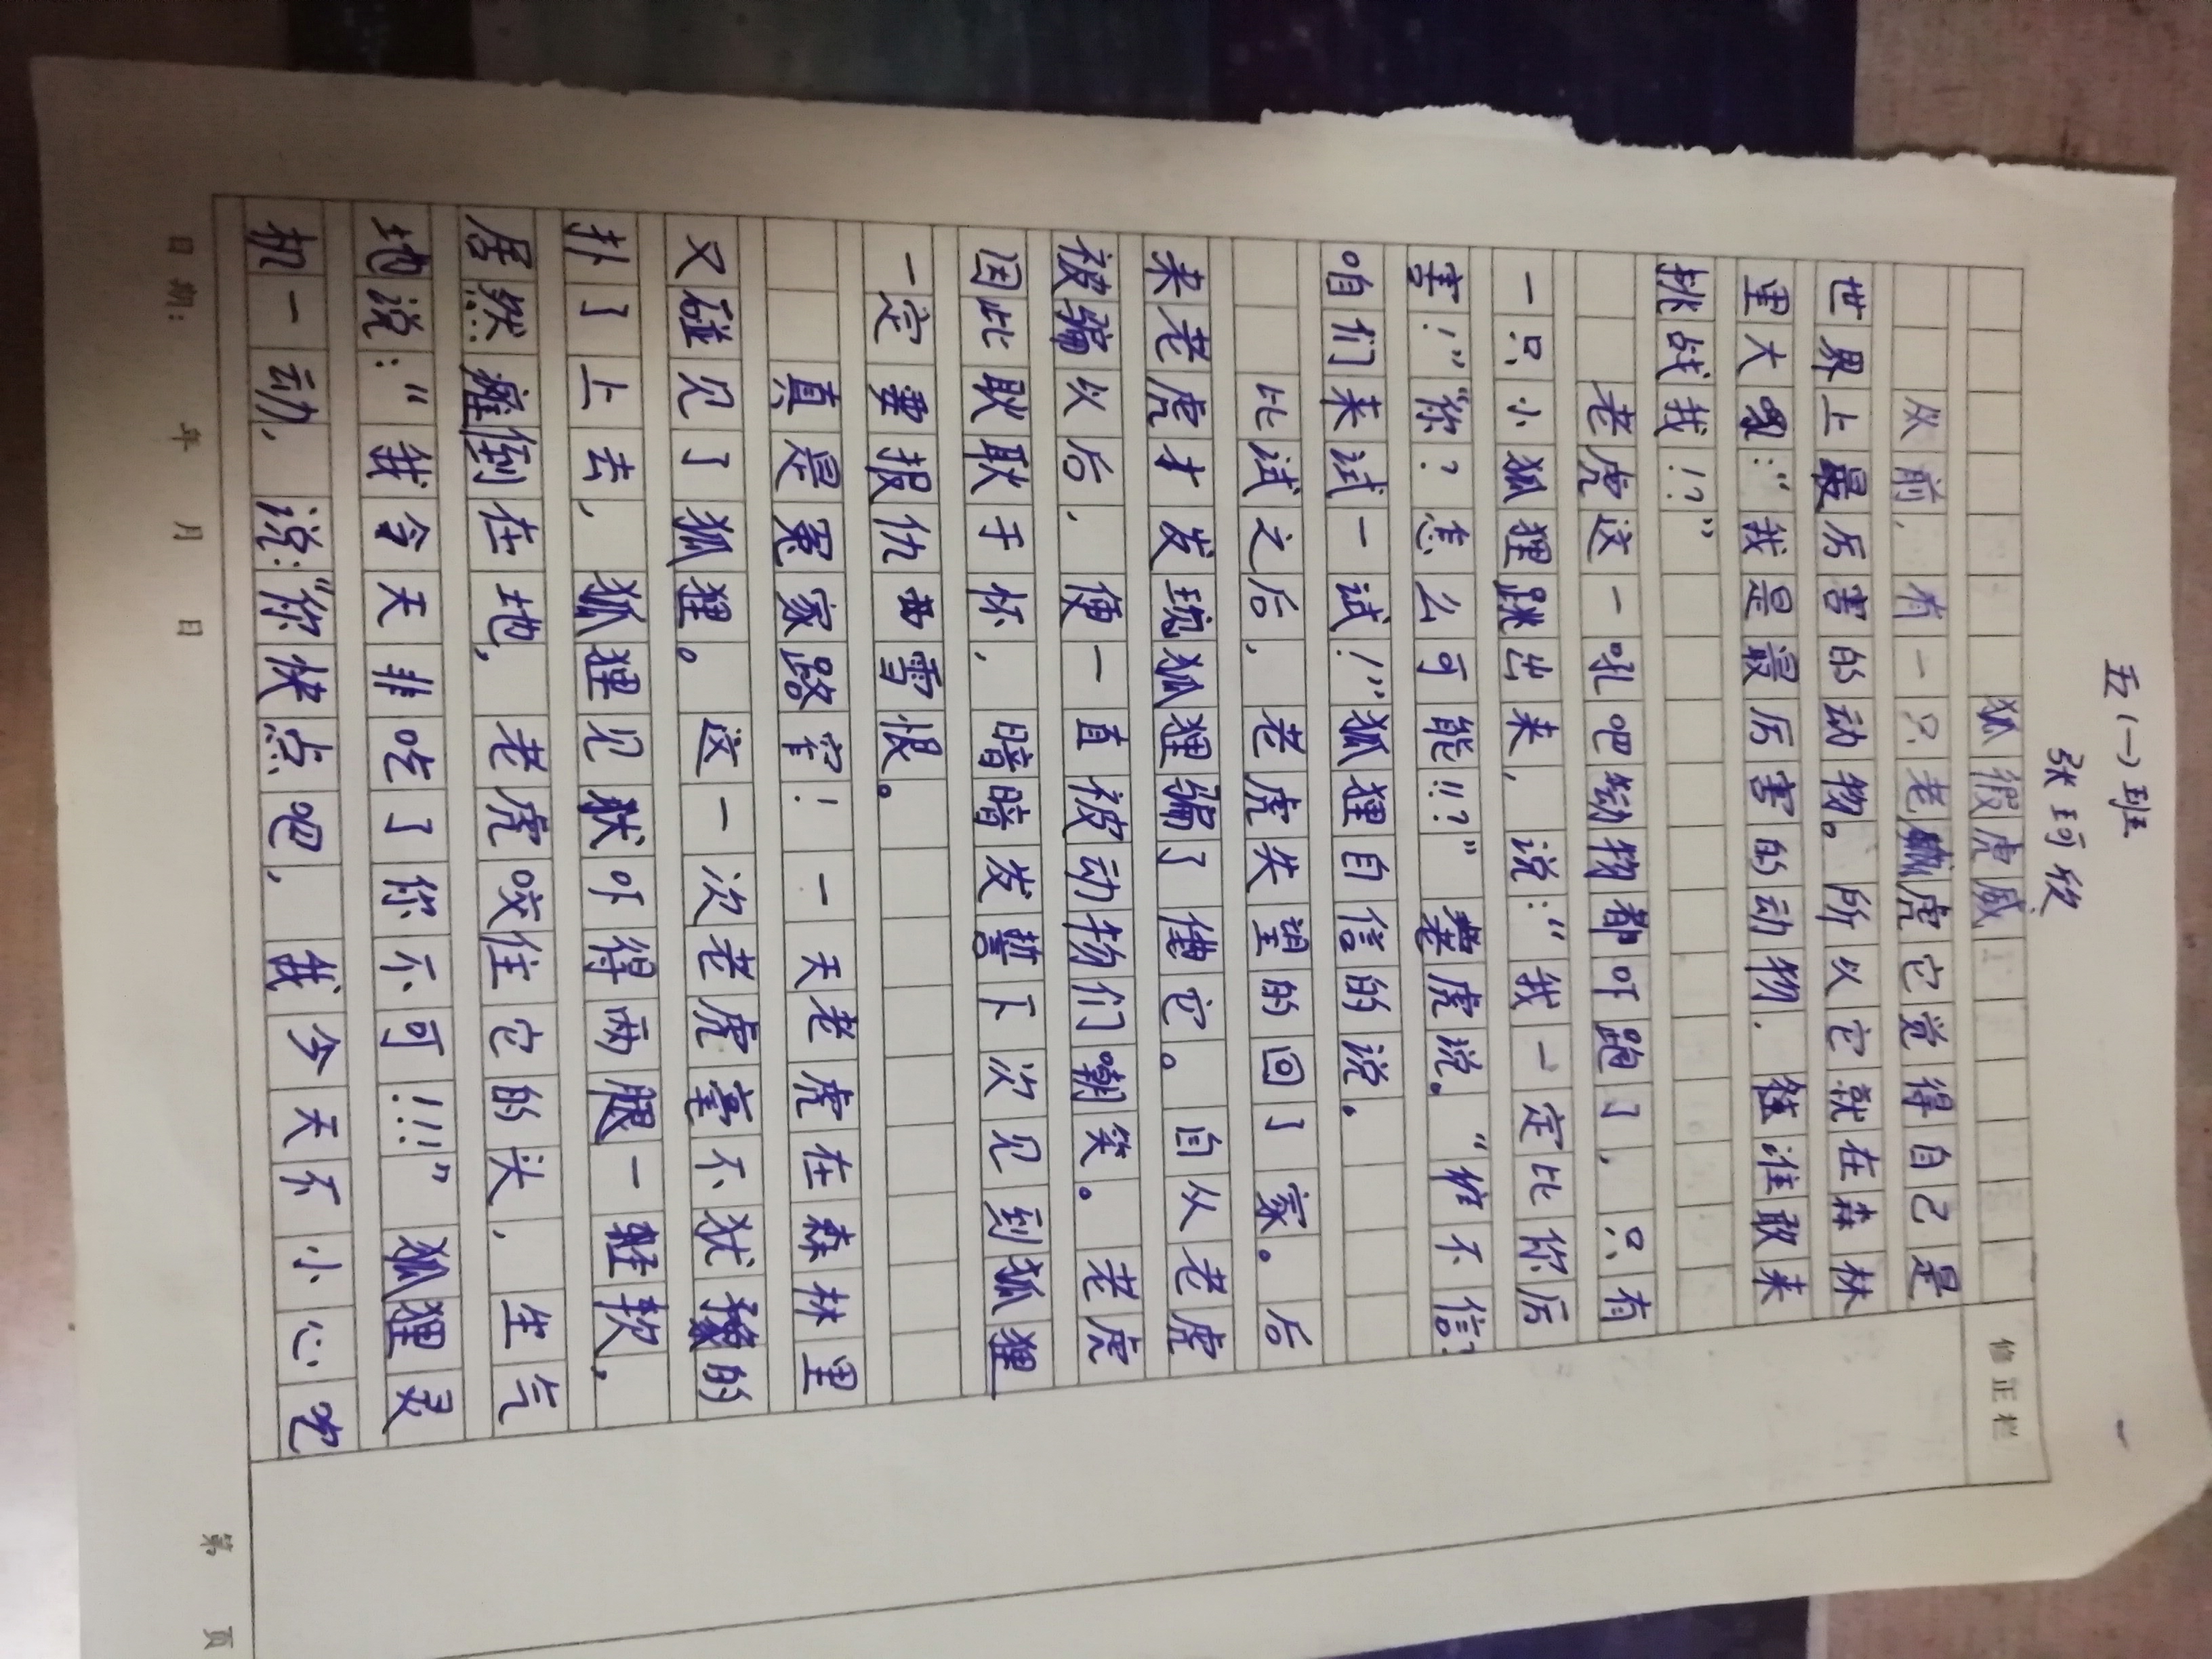 五(一)班
张珂欣
狐假虎威
修正栏
从前,有一只老虎它觉得自己是
世界上最厉害的动物。所以它就在森林
里大吼:“我是最厉害的动物.谁敢来
挑战我!?”
老虎这一吼吧动物都吓跑了,只有
一只小狐狸跳出来,说:“我一定比你厉
害!”“你?怎么可能!!?”老虎说。“你不信?
咱们来试一试!”狐狸自信的说。
比试之后,老虎失望的回了家。后
来老虎才发现狐狸骗了它。自从老虎
被骗以后,便一直被动物们嘲笑。老虎
因此耿耿于怀,暗暗发誓下次见到狐狸
一定要报仇雪恨。
真是冤家路窄!一天老虎在森林里
又碰见了狐狸。这一次老虎毫不犹豫的
扑了上去,狐狸见状吓得两腿一软,
居然瘫倒在地,老虎咬住它的头,生气
地说:“我今天非吃了你不可!!!”狐狸灵
机一动,说:“你快点吧,我今天不小心吃
日期: 年 月 日
第 页